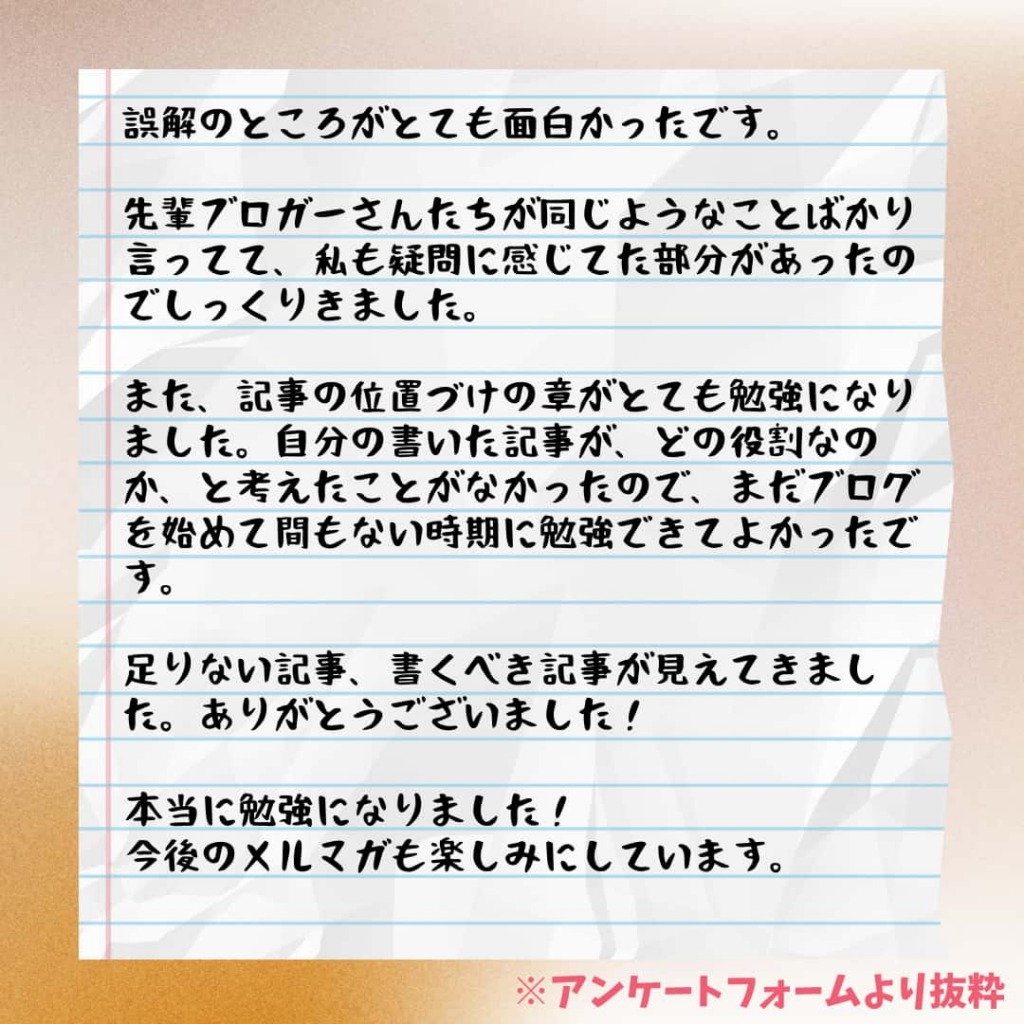 誤解のところがとても面白かったです。
先輩ブロガーさんたちが同じようなことばかり
言ってて、私も疑問に感じてた部分があったの
でしっくりきました。
また、記事の位置づけの章がとても勉強になり
ました。自分の書いた記事が、どの役割なの
か、と考えたことがなかったので、まだブログ
を始めて間もない時期に勉強できてよかったで
す。
足りない記事、書くべき記事が見えてきまし
た。ありがとうございました！
本当に勉強になりました！
今後のメルマガも楽しみにしています。
※アンケートフォームより抜粋